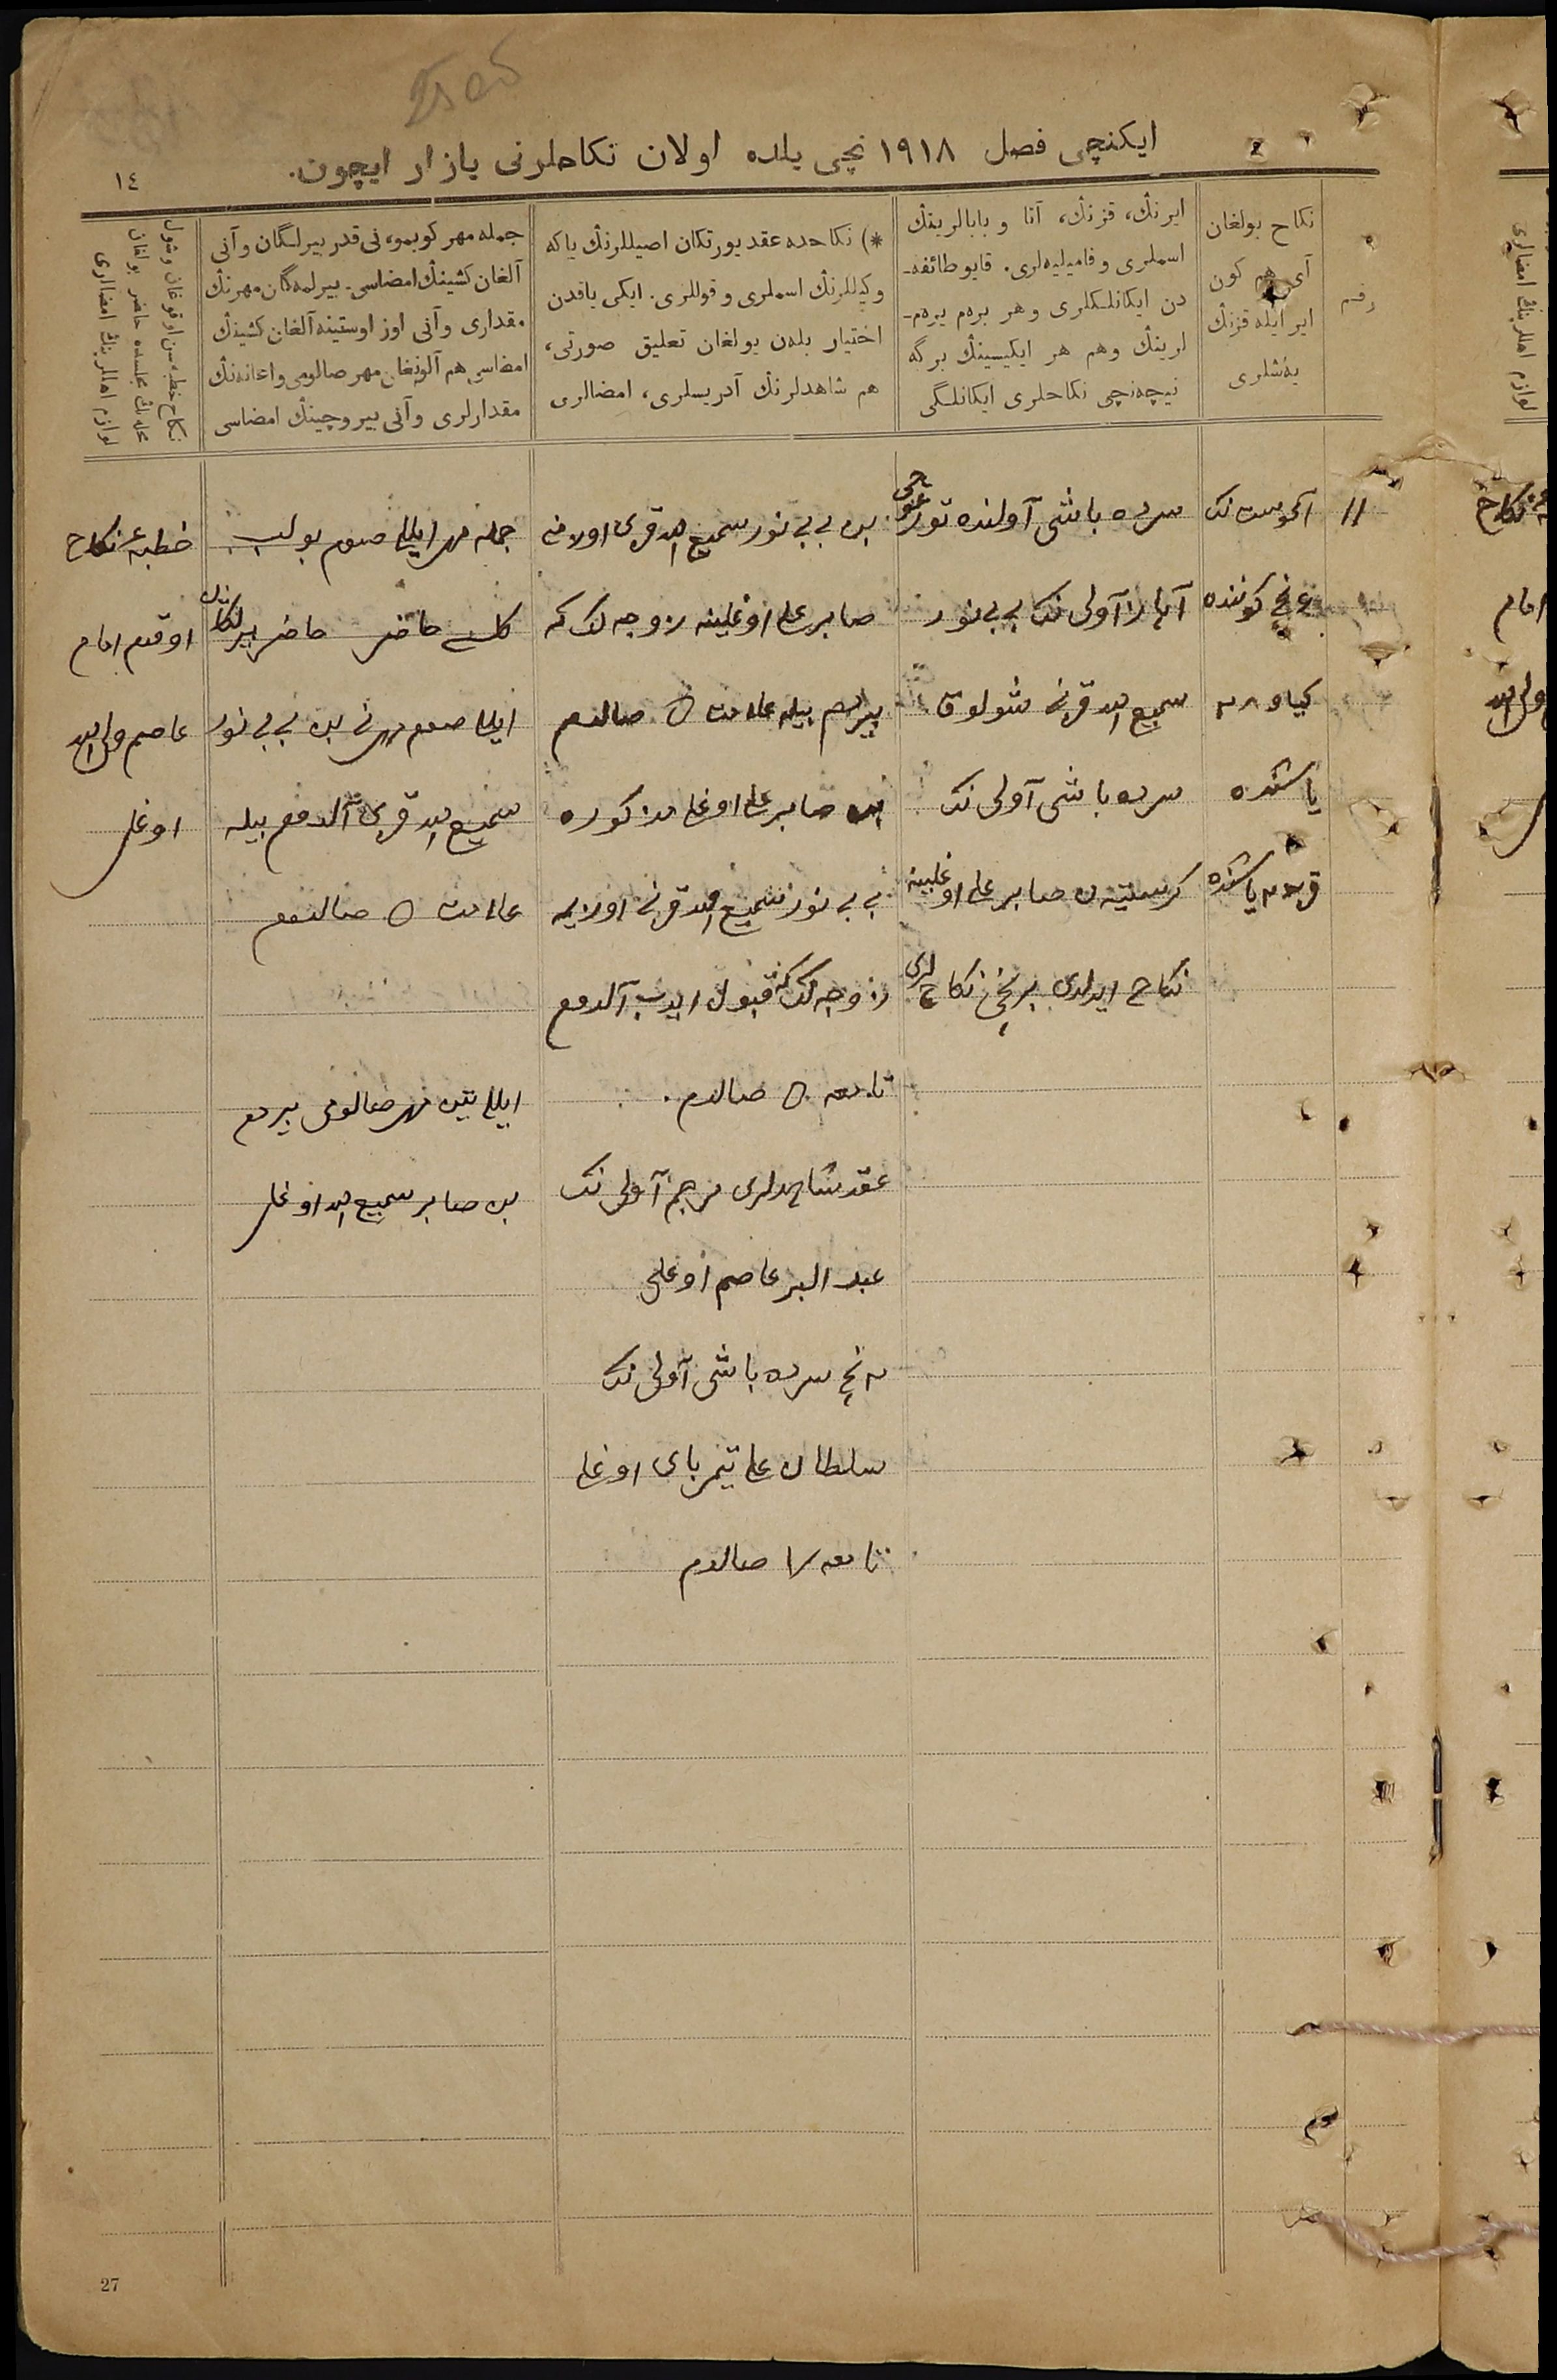 ایکنچی فصل ۱۹۱۸ نچی یلده اولان نکاحلرنی یازار ایچون.
۱٤
رقم
نکاح بولغان
آی هم کون
ایر ایله قزنڭ
یەشلری
ایرنڭ، قزنڭ، آتا و بابالرینڭ
اسملری و فامیلیەلری. قایو طائفە-
دن ایکانلکلری و هر برەم یرەم-
لرینڭ وهم هر ایکیسینڭ برگە
نیچەنچی نکاحلری ایکانلگی
*) نکاحدە عقد یورتکان اصیللرنڭ یاکە
وکیللرنڭ اسملری و قوللری. ایکی یاقدن
اختیار بلەن بولغان تعلیق صورتی،
هم شاهدلرنڭ آدریسلری، امضالری
جملە مهر کوبمو، نی قدر بیرلگان وآنی
آلغان کشینڭ امضاسی. بیرلمەگان مهرنڭ
مقداری وآنی اوز اوستینە آلغان کشینڭ
امضاسی هم آلونغان مهر صالومی واعانەنڭ
مقدارلری وآنی بیروچینڭ امضاسی
نکاح خطبەسن اوقوغان وشول
محلەنڭ مجلسدە حاضر بولغان
لوازم اهللرینڭ امضالری
11
آغوست نک
نچی کوننده
کیاو
یاشنده
قز یاشنده
سرده باشی آولنده تورغوچی
آولی نک بی بی نور
سمیع الله قزنی شولوق
سرده باشی آولی نک
کرستیەن صابر علی اوغلینه
نکاح ایدلدی برنچی نکاحلری
بن بی بی نور سمیع الله قزی اوزمنی
صابر علی اوغلینه زوجه لک که
بیردم بیله علامت صالدم
بن صابر علی اوغلی مذکوره
بی بی نور سمیع الله قزنی اوزیمه
زوجه لک که قبول ایدب آلدم
تامغه صالدم.
عقد شاهدلری آولی نک
عبد البر عاصم اوغلی
نچی سرده باشی آولی نک
سلطان علی تیمربای اوغلی
تامغه صالدم
جمله مهر ایللی صوم بولب
کل حاضر حاضر بیرلکان
ایللی صوم مهرنی بن بی بی نور
سمیع الله قزی آلدم بیله
علامت صالدم
ایللی تین مهر صالومی بیردم
بن صابر سمیع الله اوغلی
خطبهٔ نکاح
اوقدم امام
عاصم ولی الله
اوغلی
27
نکاح
امام
ولی الله
لوازم اهللرینڭ امضالری